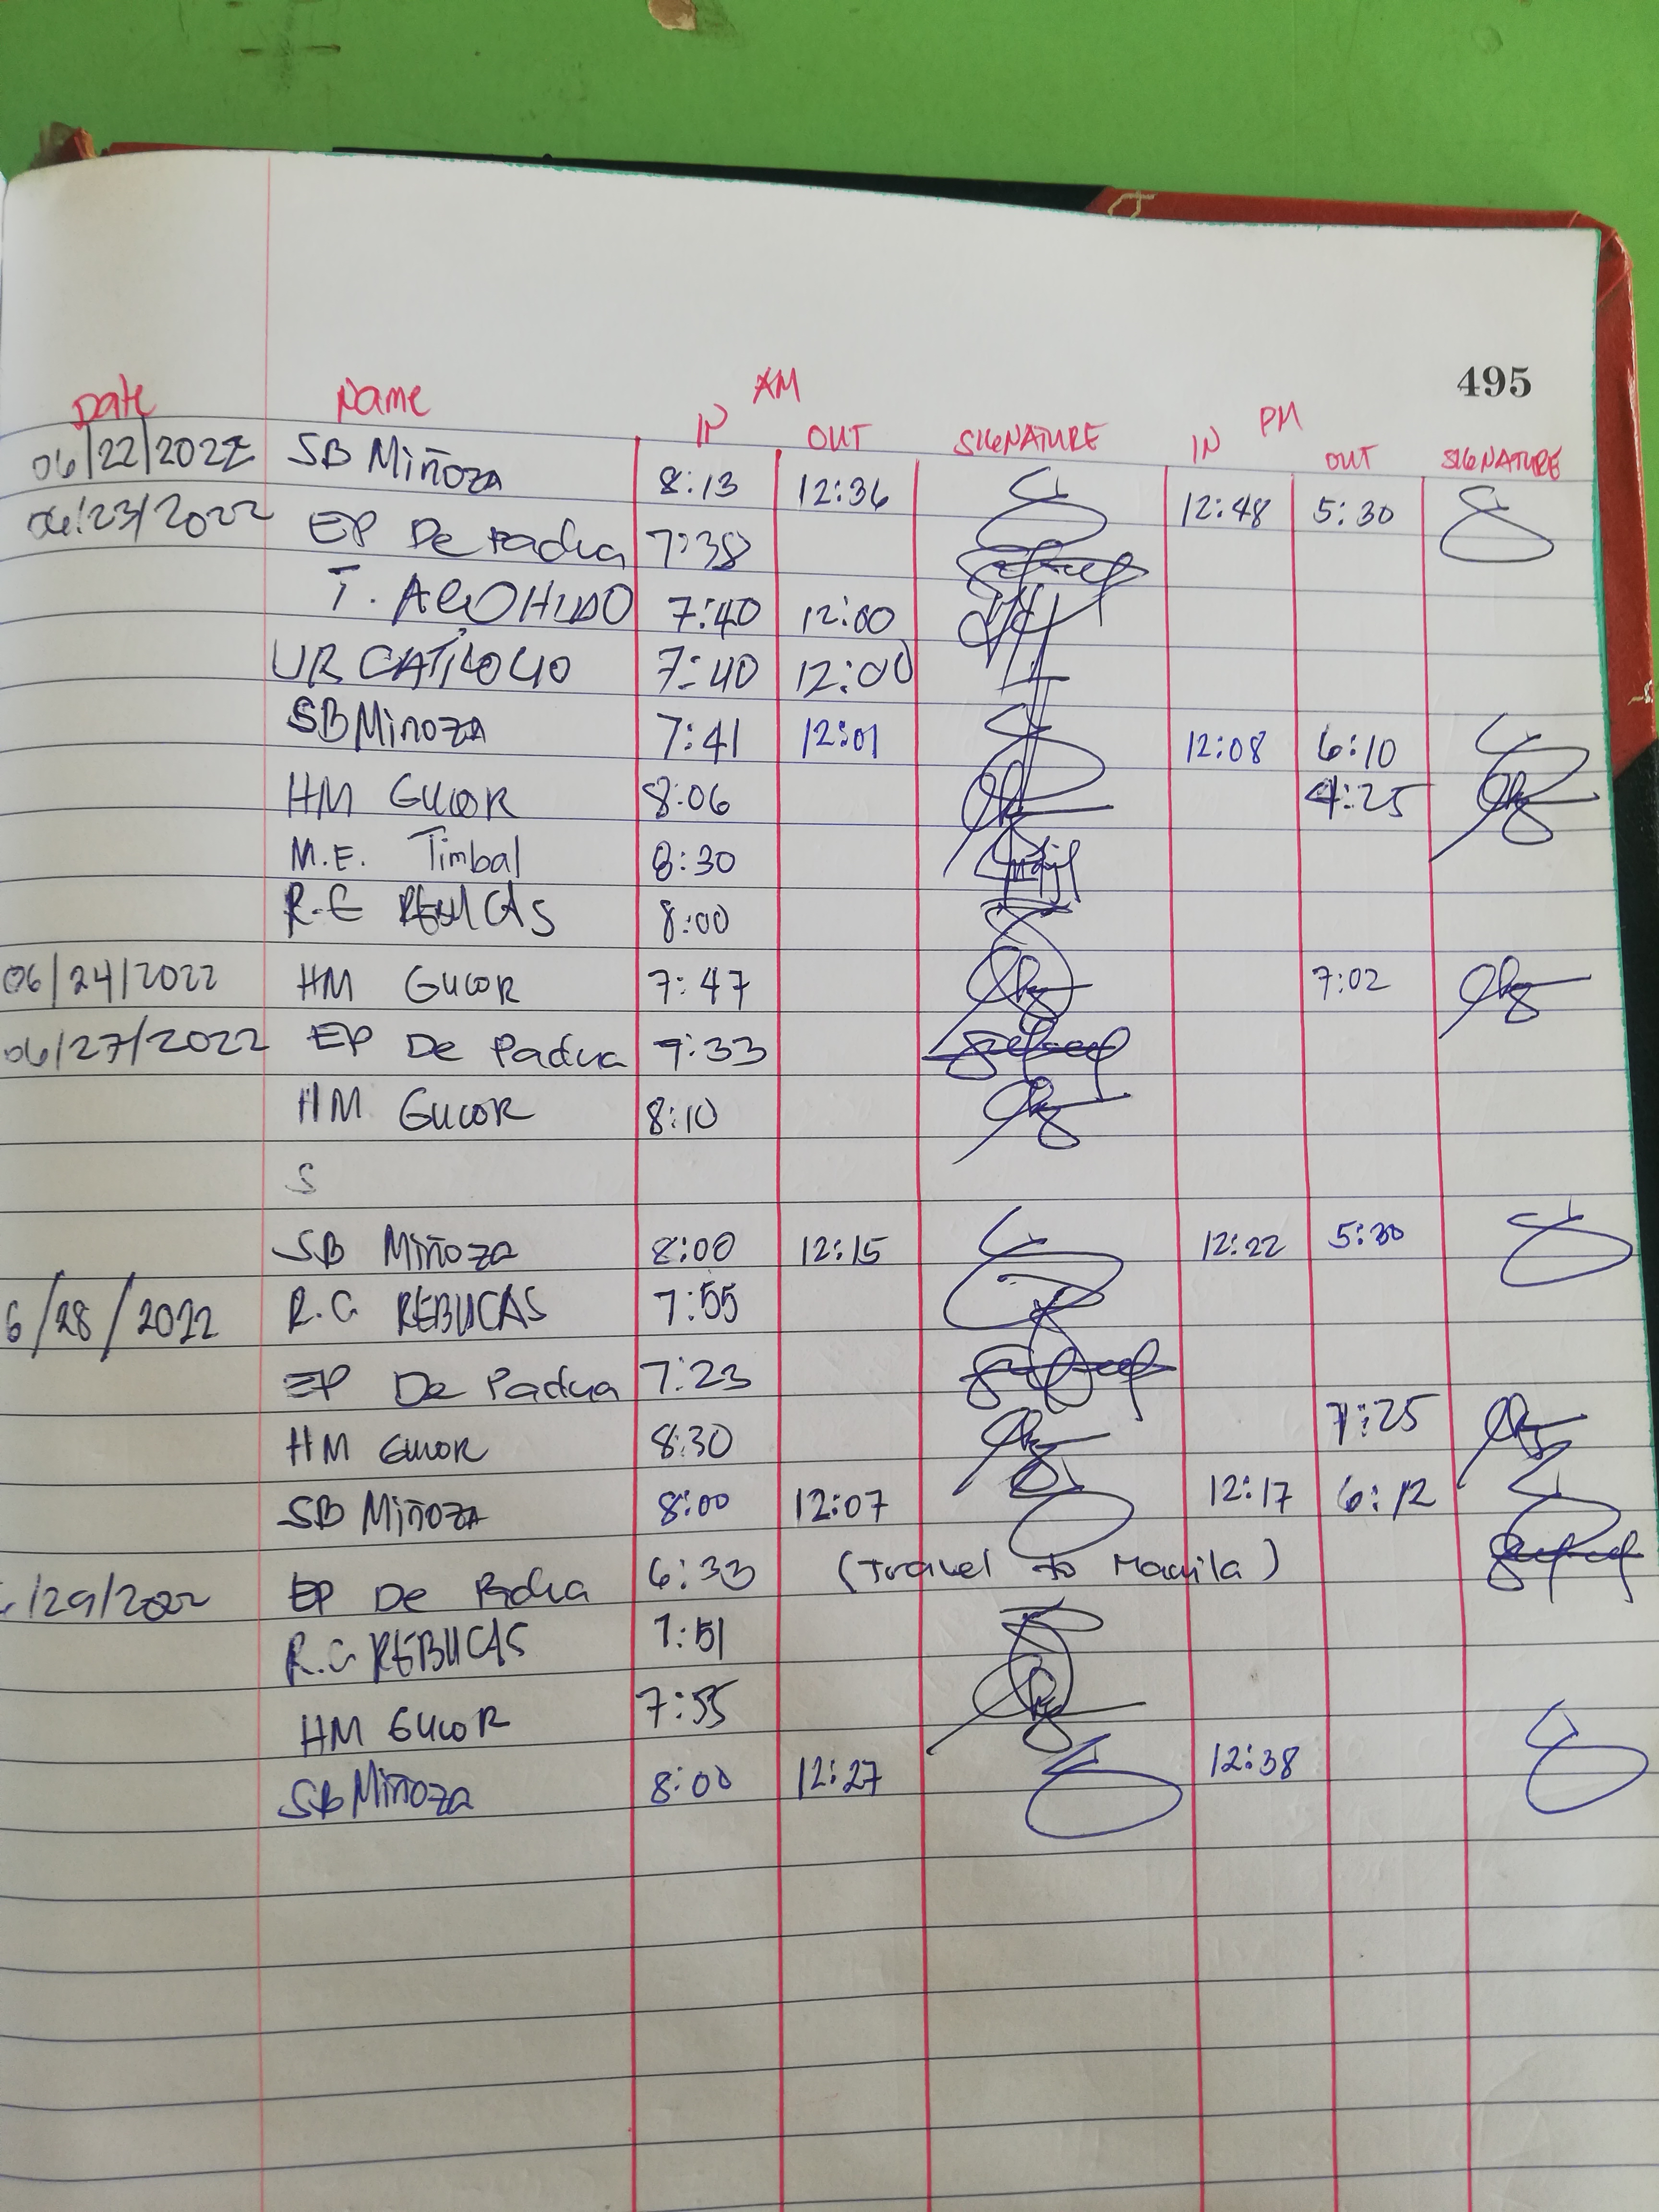 495
Date Name AM PM
IN OUT SIGNATURE IN OUT SIGNATURE
06/22/2022 SB Miñoza 8:13 12:36 12:48 5:30
06/23/2022 EP De Padua 7:38
T. 7:40 12:00
UR 7:40 12:00
SB Miñoza 7:41 12:01 12:08 6:10
HM Gucor 8:06 4:25
M.E. Timbal 8:30
REBUCAS 8:00
06/24/2022 HM Gucor 7:47 7:02
06/27/2022 EP De Padua 7:33
HM Gucor 8:10
S
SB Miñoza 8:00 12:15 12:22 5:30
6/28/2022 R.G REBUCAS 7:55
EP De Padua 7:23
HM Gucor 8:30 7:25
SB Miñoza 8:00 12:07 12:17 6:12
/29/2022 EP De Padua 6:33 (Travel to Manila)
R.G REBUCAS 7:51
HM Gucor 7:55
SB Miñoza 8:00 12:27 12:38